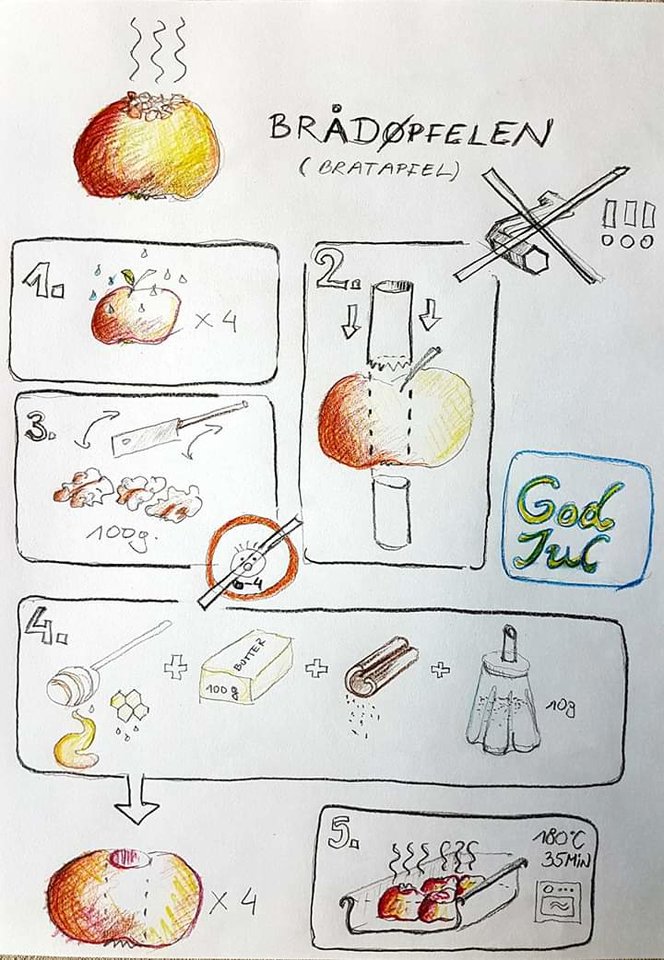 BRÅDØPFELEN
(BRATAPFEL)
!!!
1.
× 4
2.
3.
100g.
0-4
God
Jul
4.
+ BUTTER
100g
+ +
10g
× 4
5.
180°C
35MIN